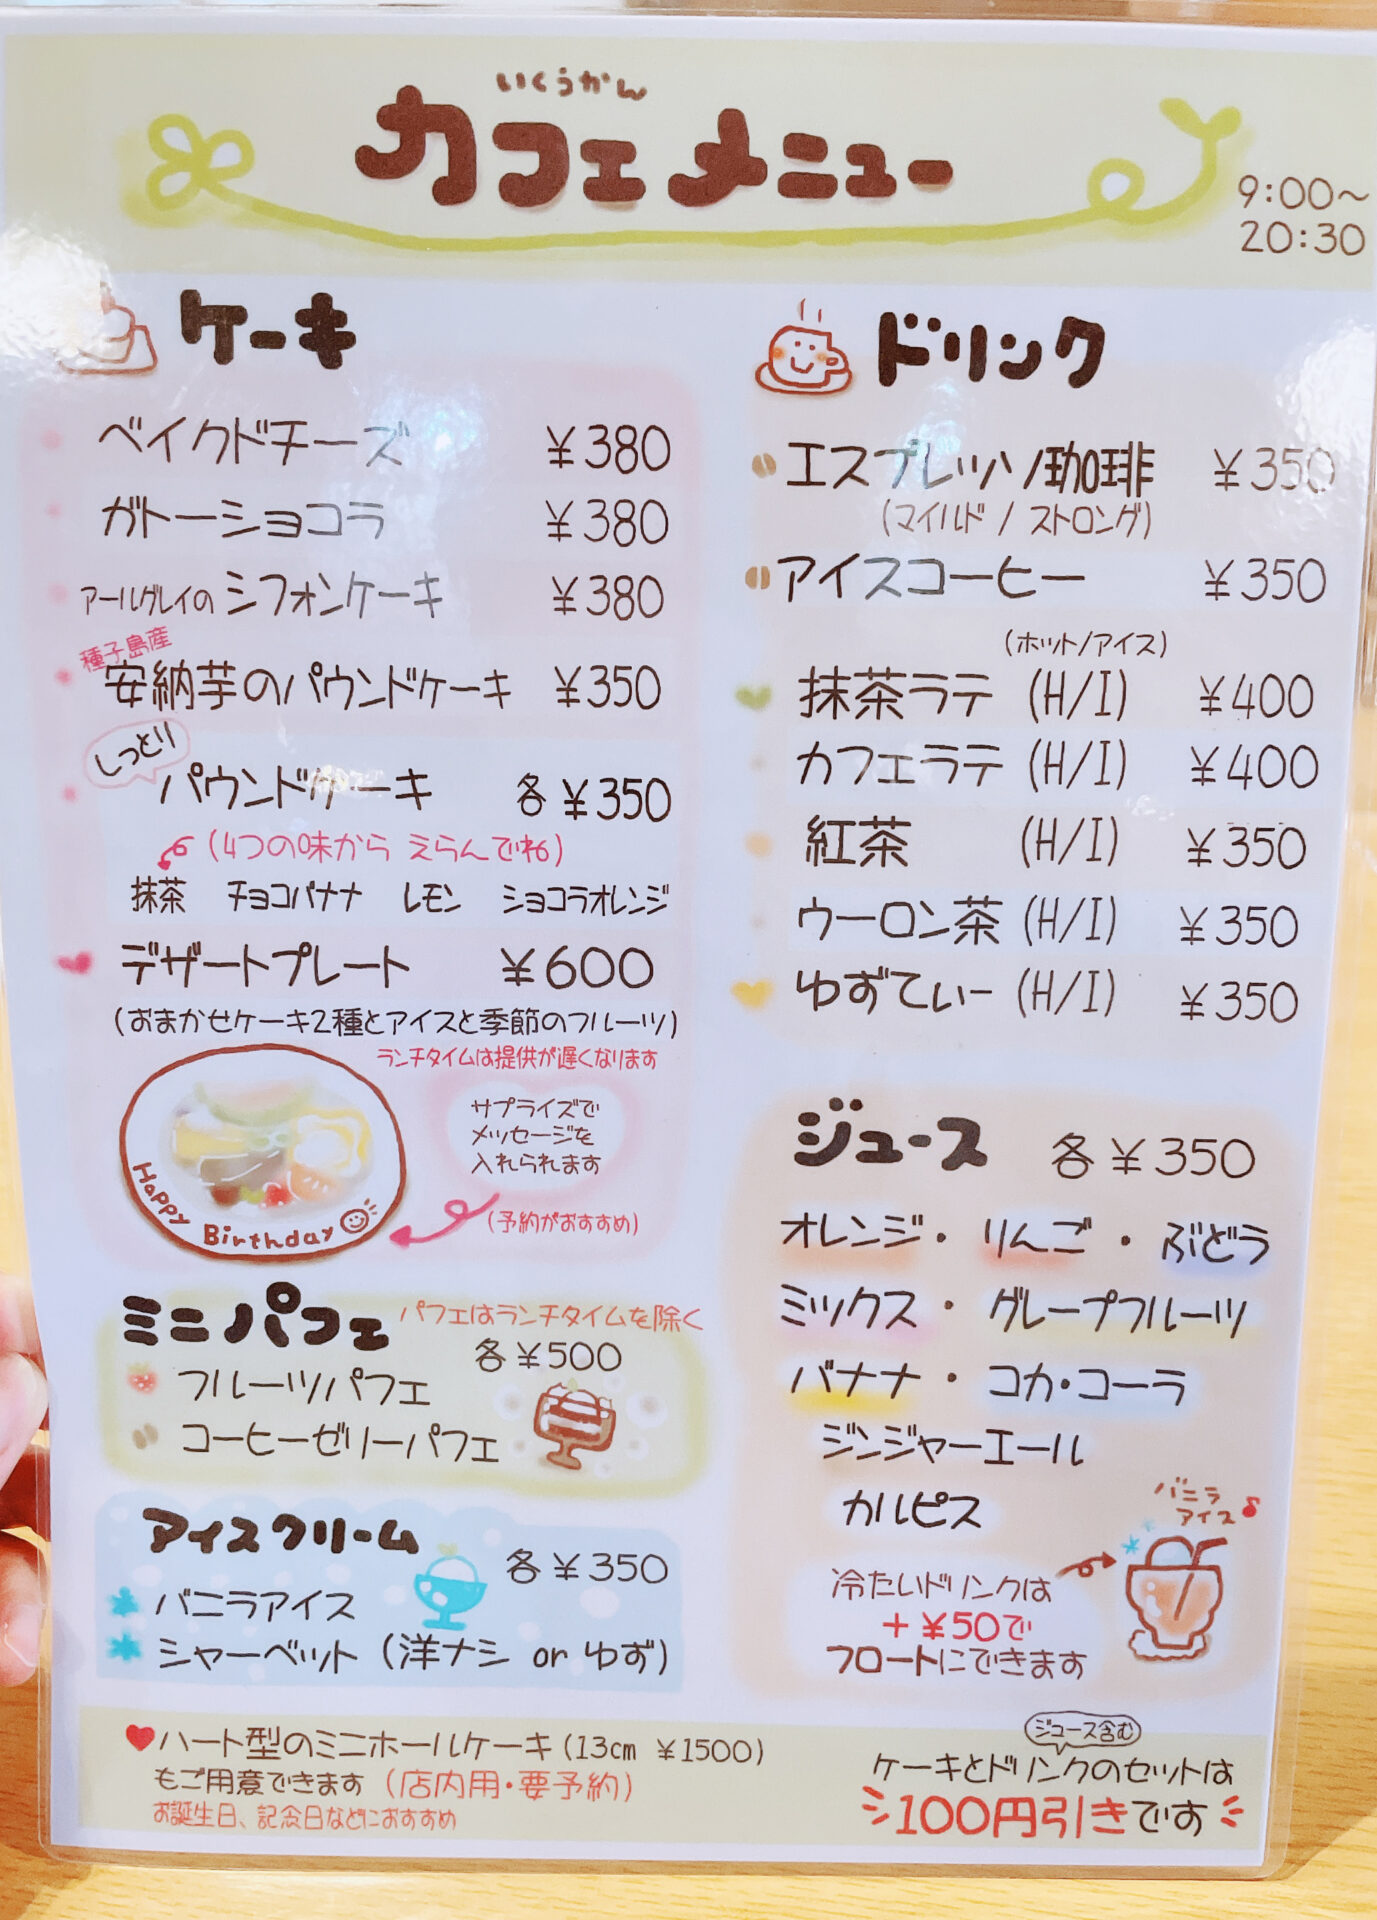 いくうかん
カフェメニュー
9:00〜
20:30
ケーキ
ベイクドチーズ ¥380
ガトーショコラ ¥380
アールグレイのシフォンケーキ ¥380
種子島産
安納芋のパウンドケーキ ¥350
しっとり
パウンドケーキ 各¥350
(4つの味から えらんでね)
抹茶 チョコバナナ レモン ショコラオレンジ
デザートプレート ¥600
(おまかせケーキ2種とアイスと季節のフルーツ)
ランチタイムは提供が遅くなります
サプライズで
メッセージを
入れられます
(予約がおすすめ)
Happy Birthday
ミニパフェ
パフェはランチタイムを除く
各¥500
フルーツパフェ
コーヒーゼリーパフェ
アイスクリーム
各¥350
バニラアイス
シャーベット (洋ナシ or ゆず)
ドリンク
エスプレッソ/珈琲 ¥350
(マイルド / ストロング)
アイスコーヒー ¥350
(ホット/アイス)
抹茶ラテ (H/I) ¥400
カフェラテ (H/I) ¥400
紅茶 (H/I) ¥350
ウーロン茶 (H/I) ¥350
ゆずてぃー (H/I) ¥350
ジュース 各¥350
オレンジ・りんご・ぶどう
ミックス・グレープフルーツ
バナナ・コカ・コーラ
ジンジャーエール
カルピス
バニラ
アイス♪
冷たいドリンクは
+¥50で
フロートにできます
♥ハート型のミニホールケーキ(13cm ¥1500)
もご用意できます (店内用・要予約)
お誕生日、記念日などにおすすめ
ジュース含む
ケーキとドリンクのセットは
100円引きです